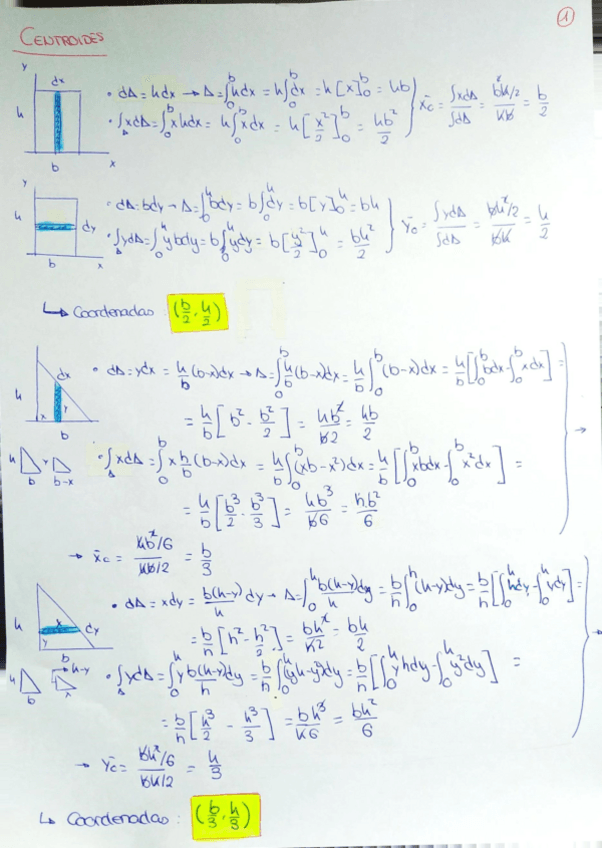 1
CENTROIDES
y
dx
h
b
x
• dA = hdx → A = ∫₀ᵇ hdx = h∫₀ᵇ dx = h[x]₀ᵇ = hb
• ∫_A xdA = ∫₀ᵇ xhdx = h∫₀ᵇ xdx = h[x²/2]₀ᵇ = hb²/2
x̄c = ∫xdA/∫dA = (b²h/2)/(hb) = b/2
y
h
dy
b
x
• dA = bdy → A = ∫₀ʰ bdy = b∫₀ʰ dy = b[y]₀ʰ = bh
• ∫_A ydA = ∫₀ʰ ybdy = b∫₀ʰ ydy = b[y²/2]₀ʰ = bh²/2
ȳc = ∫ydA/∫dA = (bh²/2)/(bh) = h/2
↳ Coordenadas: (b/2, h/2)
dx
h
x
y
b
• dA = ydx = h/b (b-x)dx → A = ∫₀ᵇ h/b (b-x)dx = h/b ∫₀ᵇ (b-x)dx = h/b [∫₀ᵇ bdx - ∫₀ᵇ xdx] =
= h/b [b² - b²/2] = hb²/b2 = hb/2
h
b
y
b-x
• ∫_A xdA = ∫₀ᵇ x h/b (b-x)dx = h/b ∫₀ᵇ (xb-x²)dx = h/b [∫₀ᵇ xbdx - ∫₀ᵇ x²dx] =
= h/b [b³/2 - b³/3] = hb³/b6 = hb²/6
→
→ x̄c = (hb²/6)/(hb/2) = b/3
h
x
y
dy
b
• dA = xdy = b(h-y)/h dy → A = ∫₀ʰ b(h-y)/h dy = b/h ∫₀ʰ (h-y)dy = b/h [∫₀ʰ hdy - ∫₀ʰ ydy] =
= b/h [h² - h²/2] = bh²/h2 = bh/2
h
b
h-y
x
• ∫_A ydA = ∫₀ʰ y b(h-y)/h dy = b/h ∫₀ʰ (yh-y²)dy = b/h [∫₀ʰ yhdy - ∫₀ʰ y²dy] =
= b/h [h³/2 - h³/3] = bh³/h6 = bh²/6
→
→ ȳc = (bh²/6)/(bh/2) = h/3
↳ Coordenadas: (b/3, h/3)